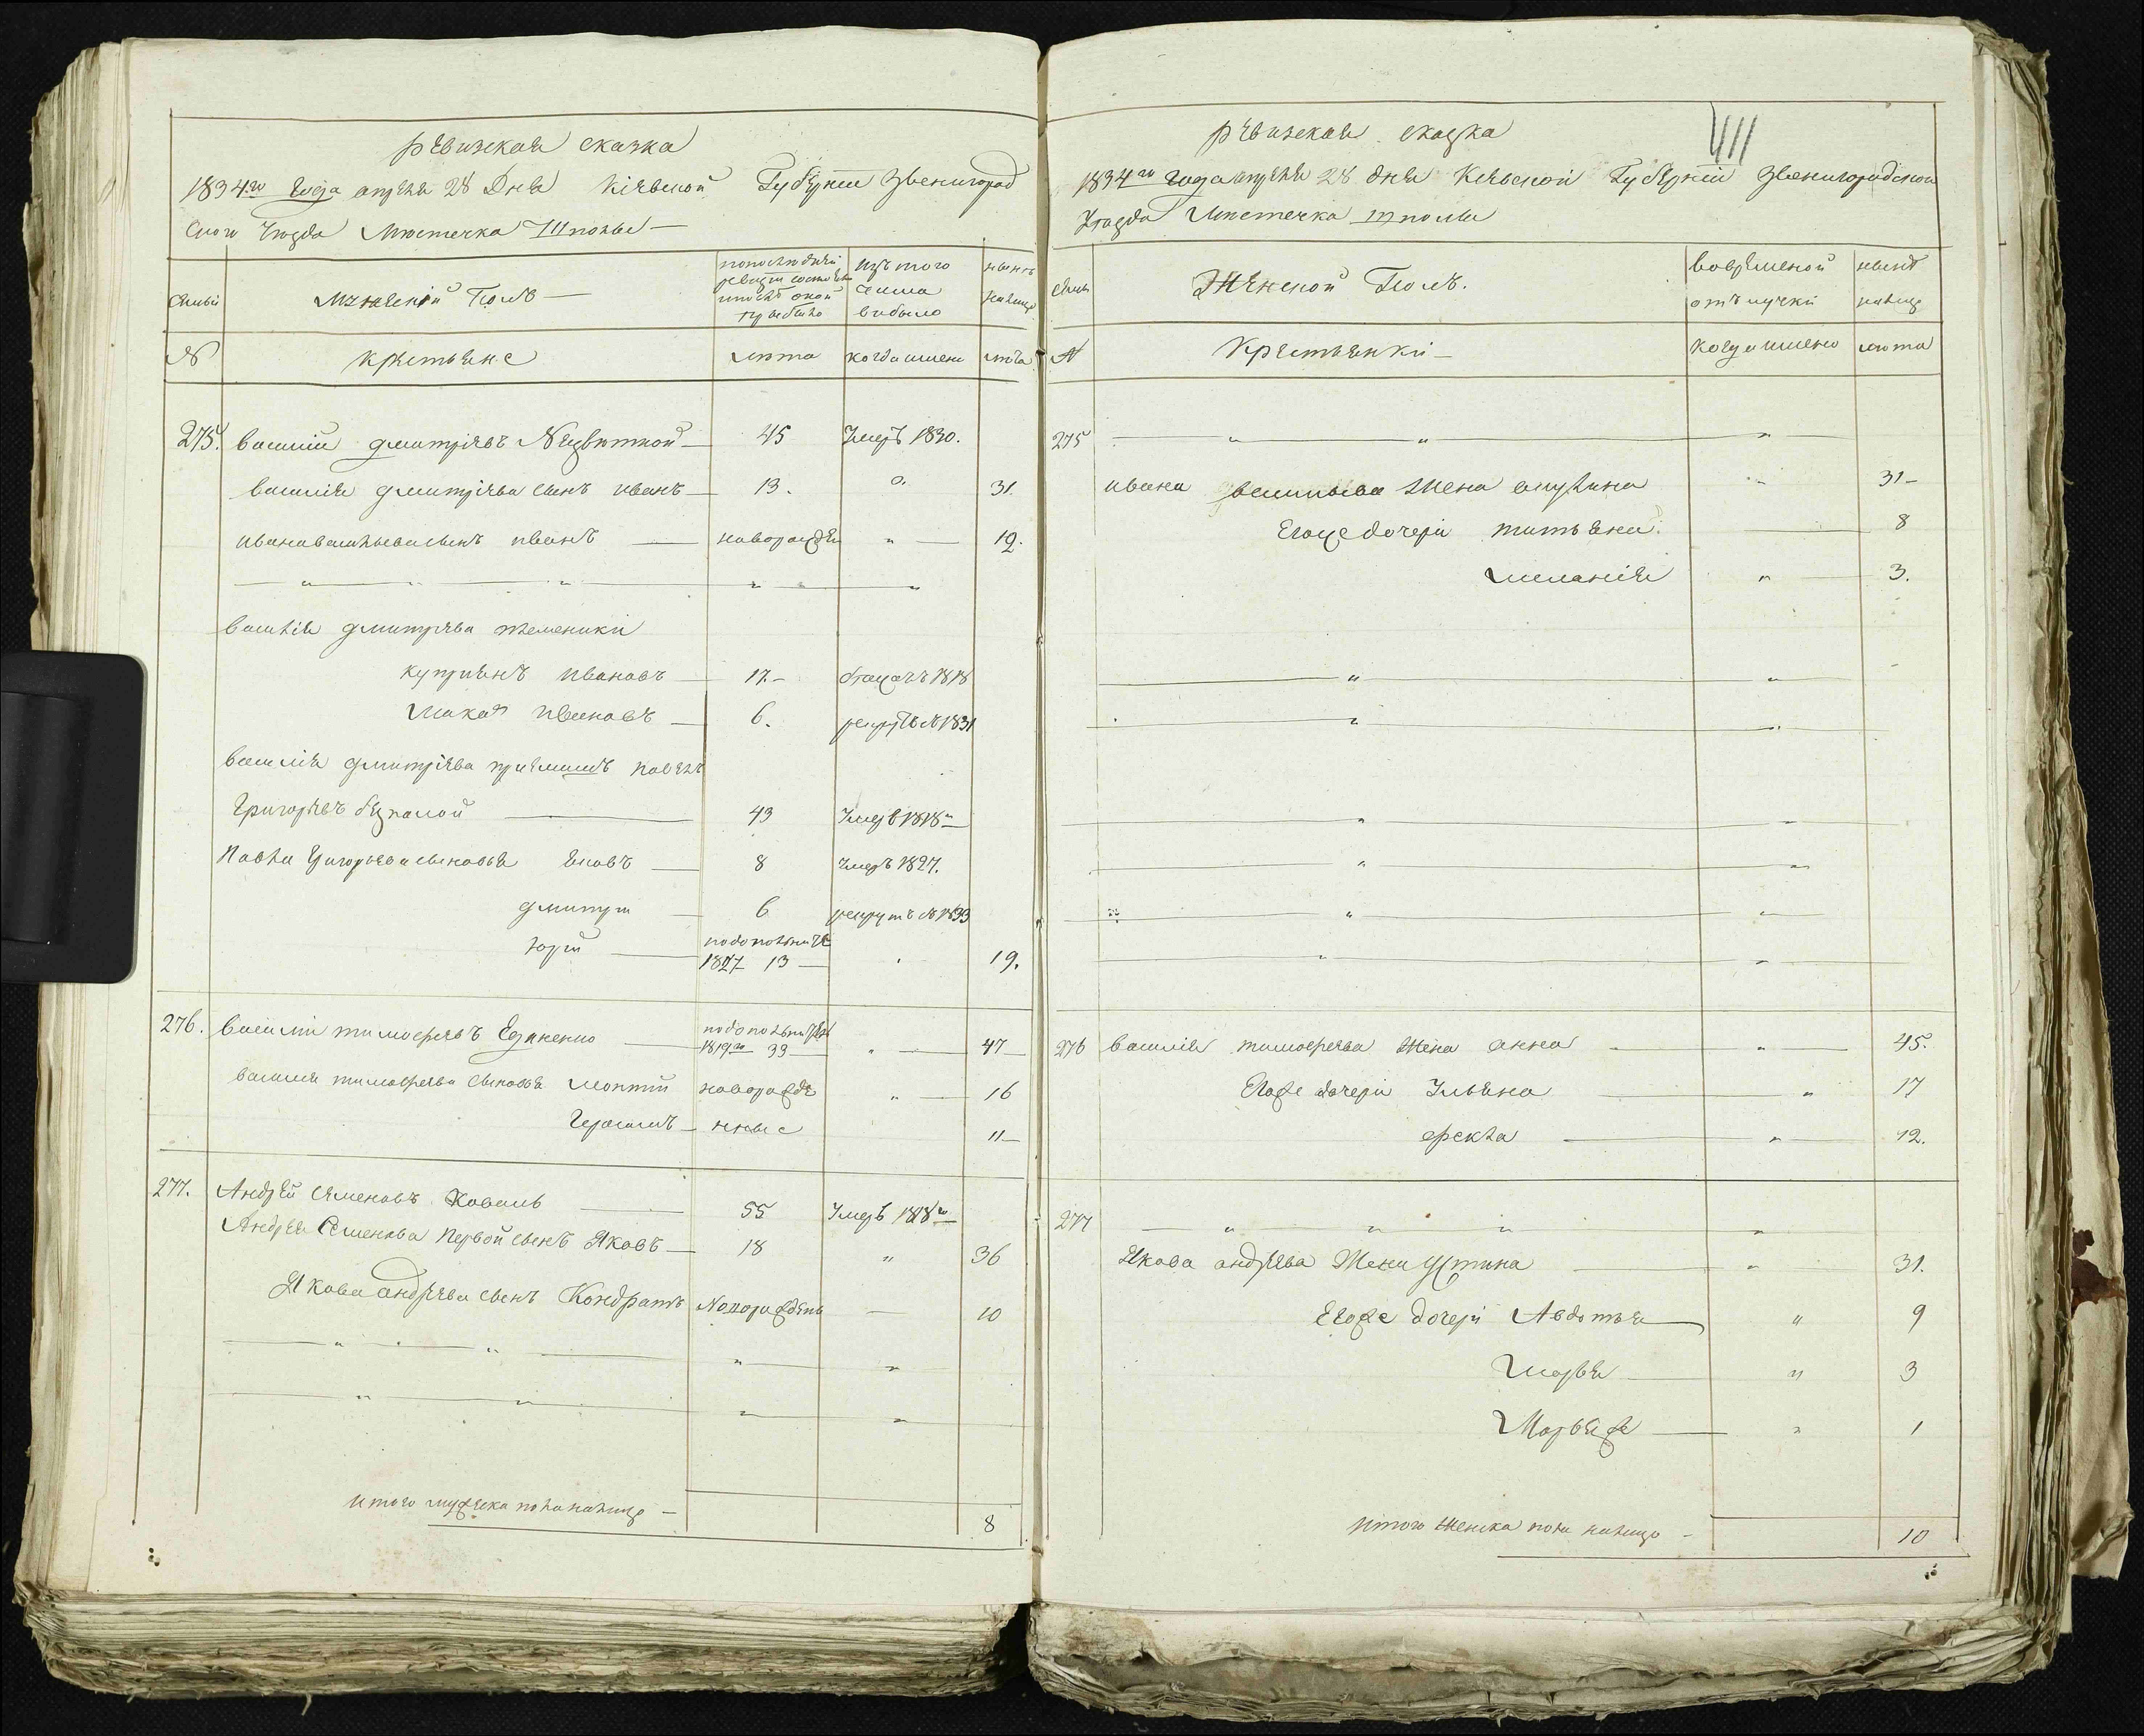 ревизская сказка
1834го Года апреля 28 Дня Кіевской Губерніи Звенигород
ского Уезда Местечка Шполы —
семьи
Мужеский Полъ —
по последней ревизіи состояло и после оной прибыло
Изъ того числа выбыло
ныне налицо
№
крестьяне
лета
когда имено
лета
275. василий дмитріевъ Незвютной — 45 Умеръ 1830.
василия дмитріева сынъ иванъ — 13. " 31.
ивана васильева сынъ иванъ — новорожден " — 12.
василия дмитріева племеники
куприянъ ивановъ — 17 – 1818
Макар ивановъ — 6. рекрутъ в 1831
василия дмитріева приемышъ павелъ
Григорьевъ безпалой — 43 Умеръ 1818го
Павла Григорьева сыновья Яковъ — 8 умеръ 1827.
дмитри — 6 рекрутъ в 1833
юрий — подополнитель
1827 13 — " 19.
276. василий тимофеевъ Едяненко — подополнитель
1819го 33 — " — 47
василия тимофеева сыновья леонтий новорожде " — 16
Герасимъ — нные 11 —
277. Андрей Семеновъ Коваль — 55 Умеръ 1818го
Андрея Семенова Первой сынъ Яковъ — 18 " 36
Якова андреева сынъ Кондратъ Новорожденъ — 10
итого мужеска пола налицо — 8
ревизская сказка
411
1834го Года апреля 28 дня Кіевской Губерніи Звенигородской
Уезда Местечка шполы
семьи
Женской Полъ.
во временой отълучки
ныне налицо
№
Крестьянки —
когда имено
лета
275
ивана васильева жена акулина " 31 –
Егоже дочери татьяна 8
мелания " — 3.
276 василия тимофеева жена анна — " — 45.
Егоже дочери Ульяна — " 17
фекла — " — 12.
277
Якова андреева Жена Устина — " 31.
Егоже дочери Авдотья — " 9
Марья — " 3
Марья же — " 1
Итого женска пола налицо – 10